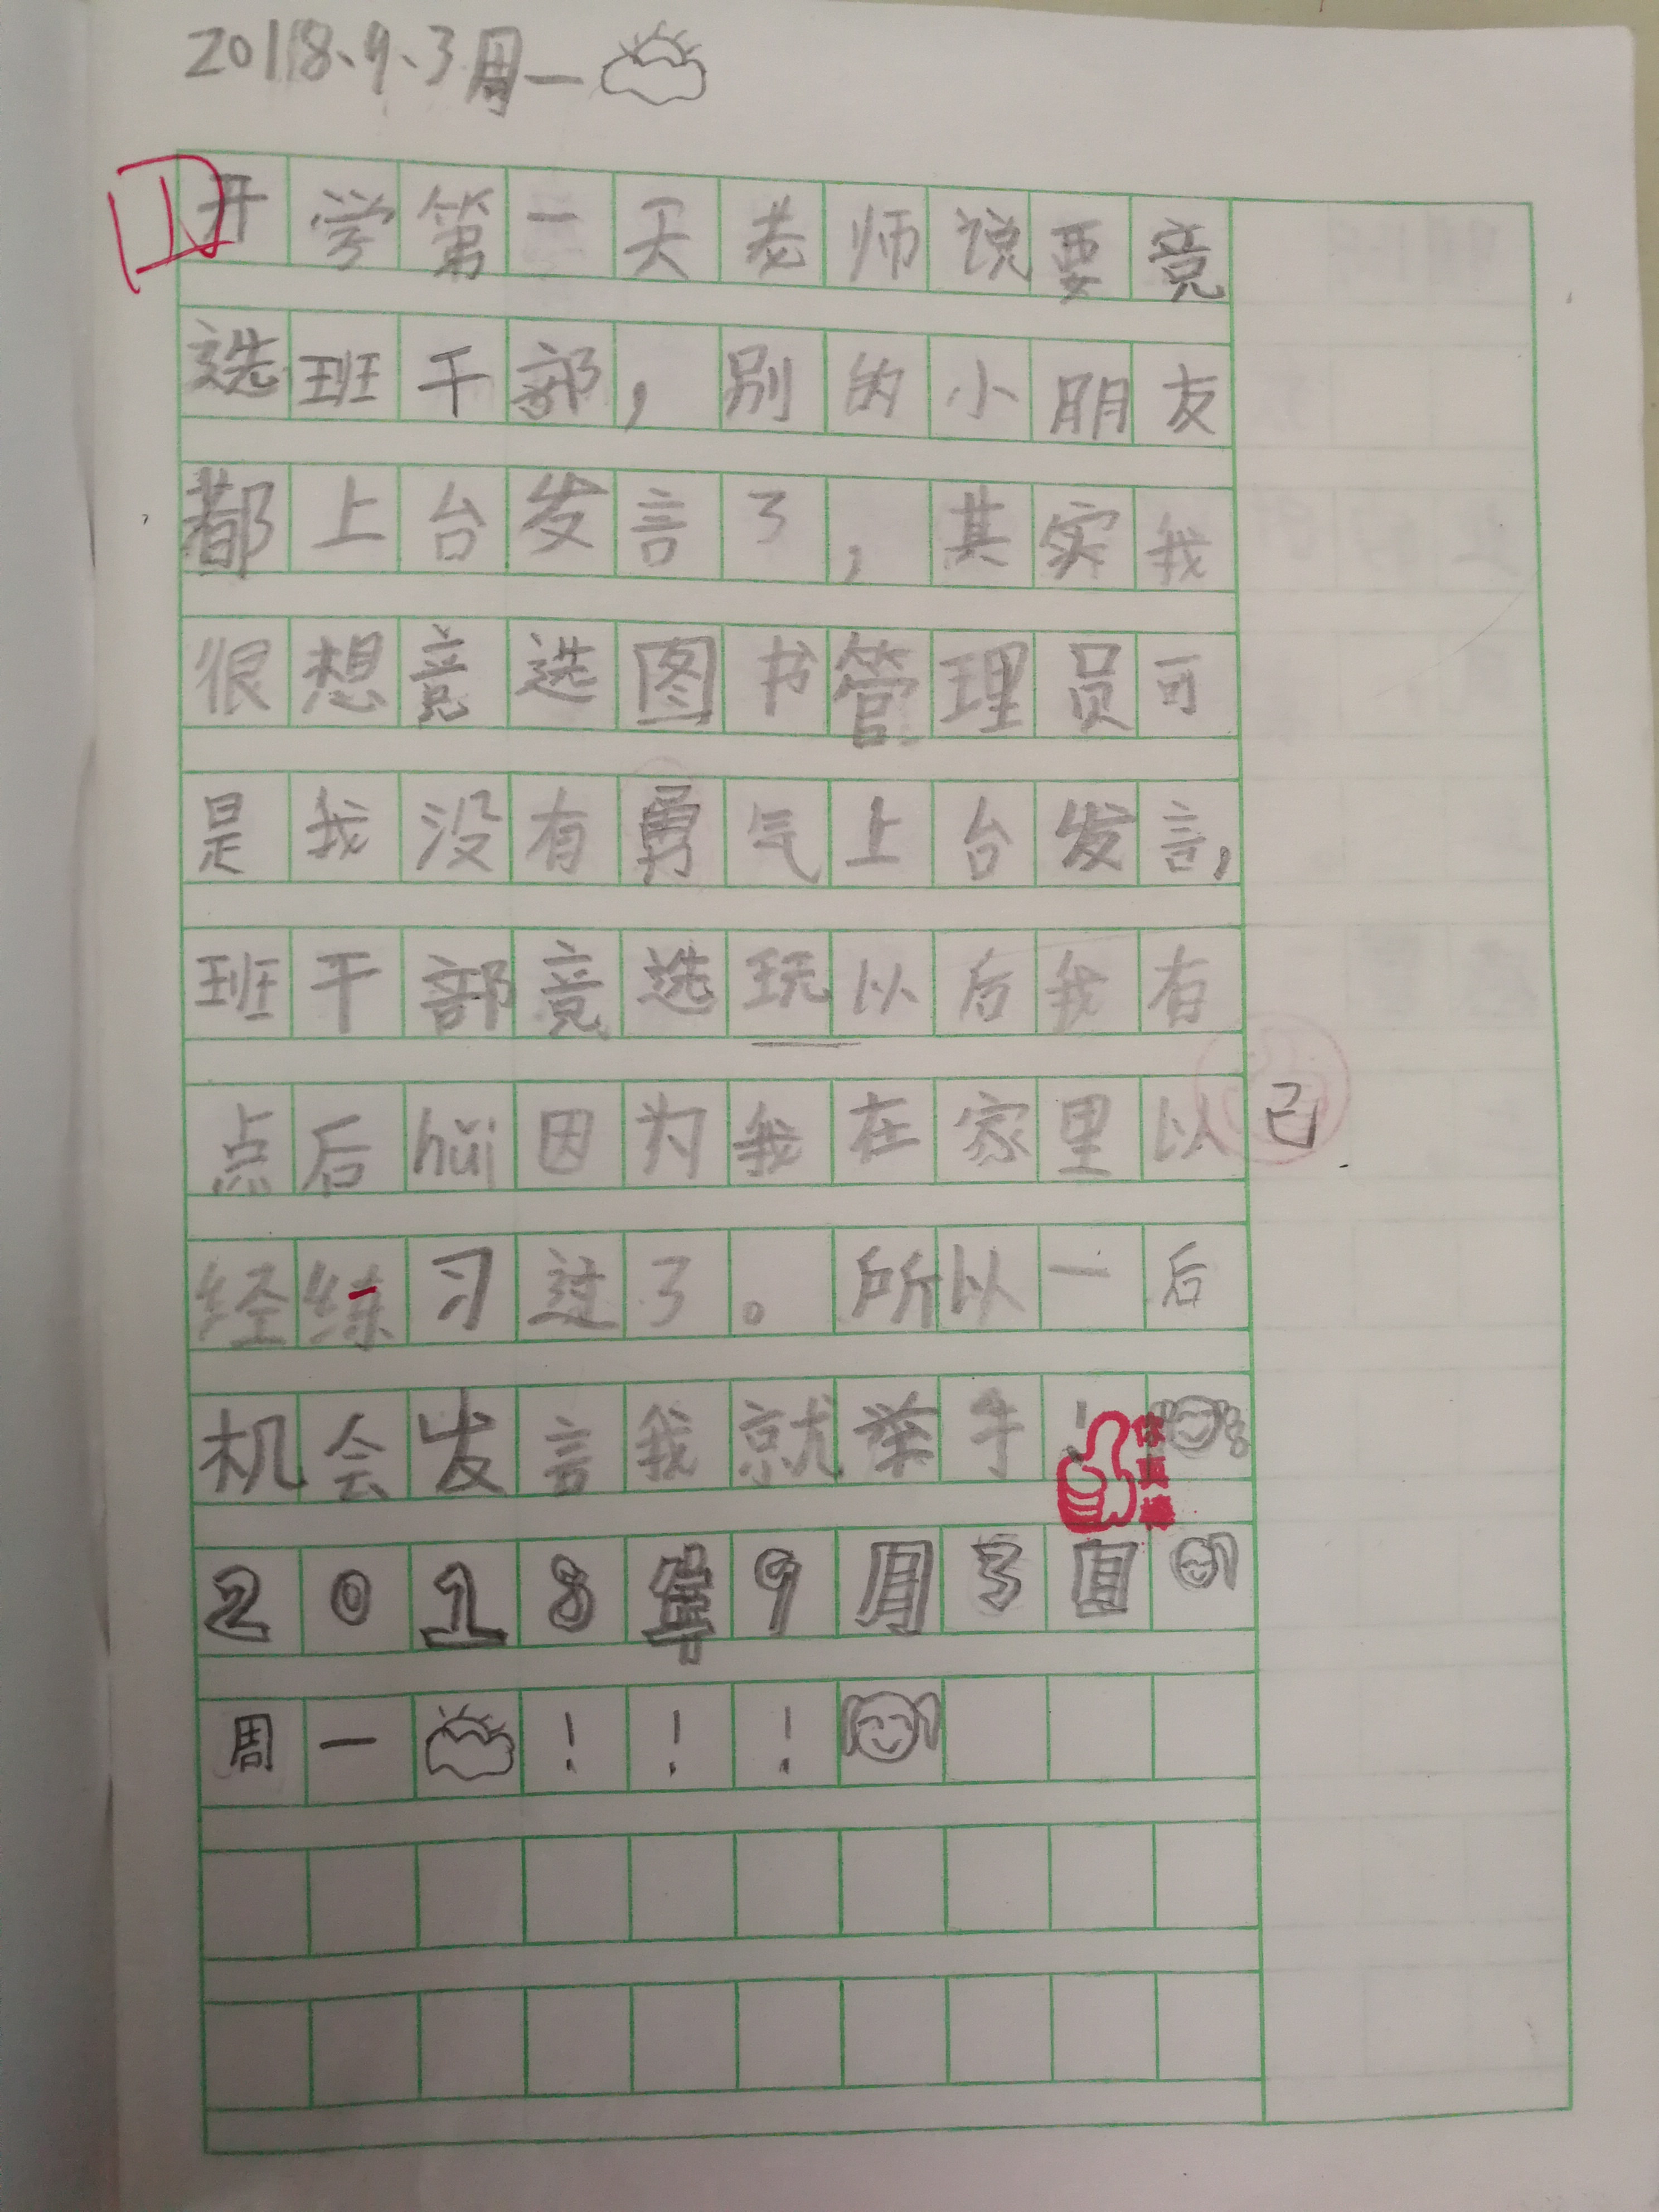 2018、9、3周一
开学第一天老师说要竞
选班干部，别的小朋友
都上台发言了，其实我
很想竞选图书管理员可
是我没有勇气上台发言，
班干部竞选玩以后我有
点后huǐ因为我在家里以 已
经练习过了。所以一后
机会发言我就举手！
你真棒
2018年9月3日
周一！！！